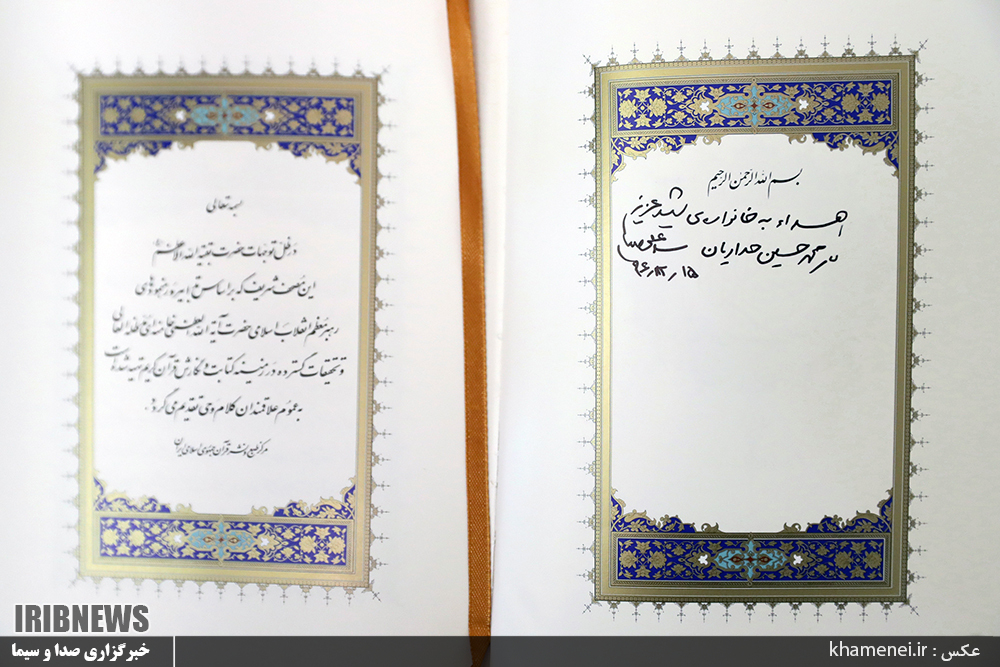 بسم الله الرحمن الرحیم
اهداء به خانواده‌ی شهید عزیز
محمد حسین حدادیان سید علی خامنه‌ای
۹۶/۱۲/۱۵
بسمه تعالی
در ظل توجهات حضرت بقیة الله الاعظم
این مصحف شریف که بر اساس تدابیر و رهنمودهای
رهبر معظم انقلاب اسلامی حضرت آیة الله العظمی خامنه‌ای مدظله العالی
و تحقیقات گسترده در زمینه کتابت و نگارش قرآن کریم تهیه شده است
به عموم علاقمندان کلام وحی تقدیم می گردد.
مرکز طبع و نشر قرآن جمهوری اسلامی ایران
IRIBNEWS
خبرگزاری صدا و سیما
عکس : khamenei.ir